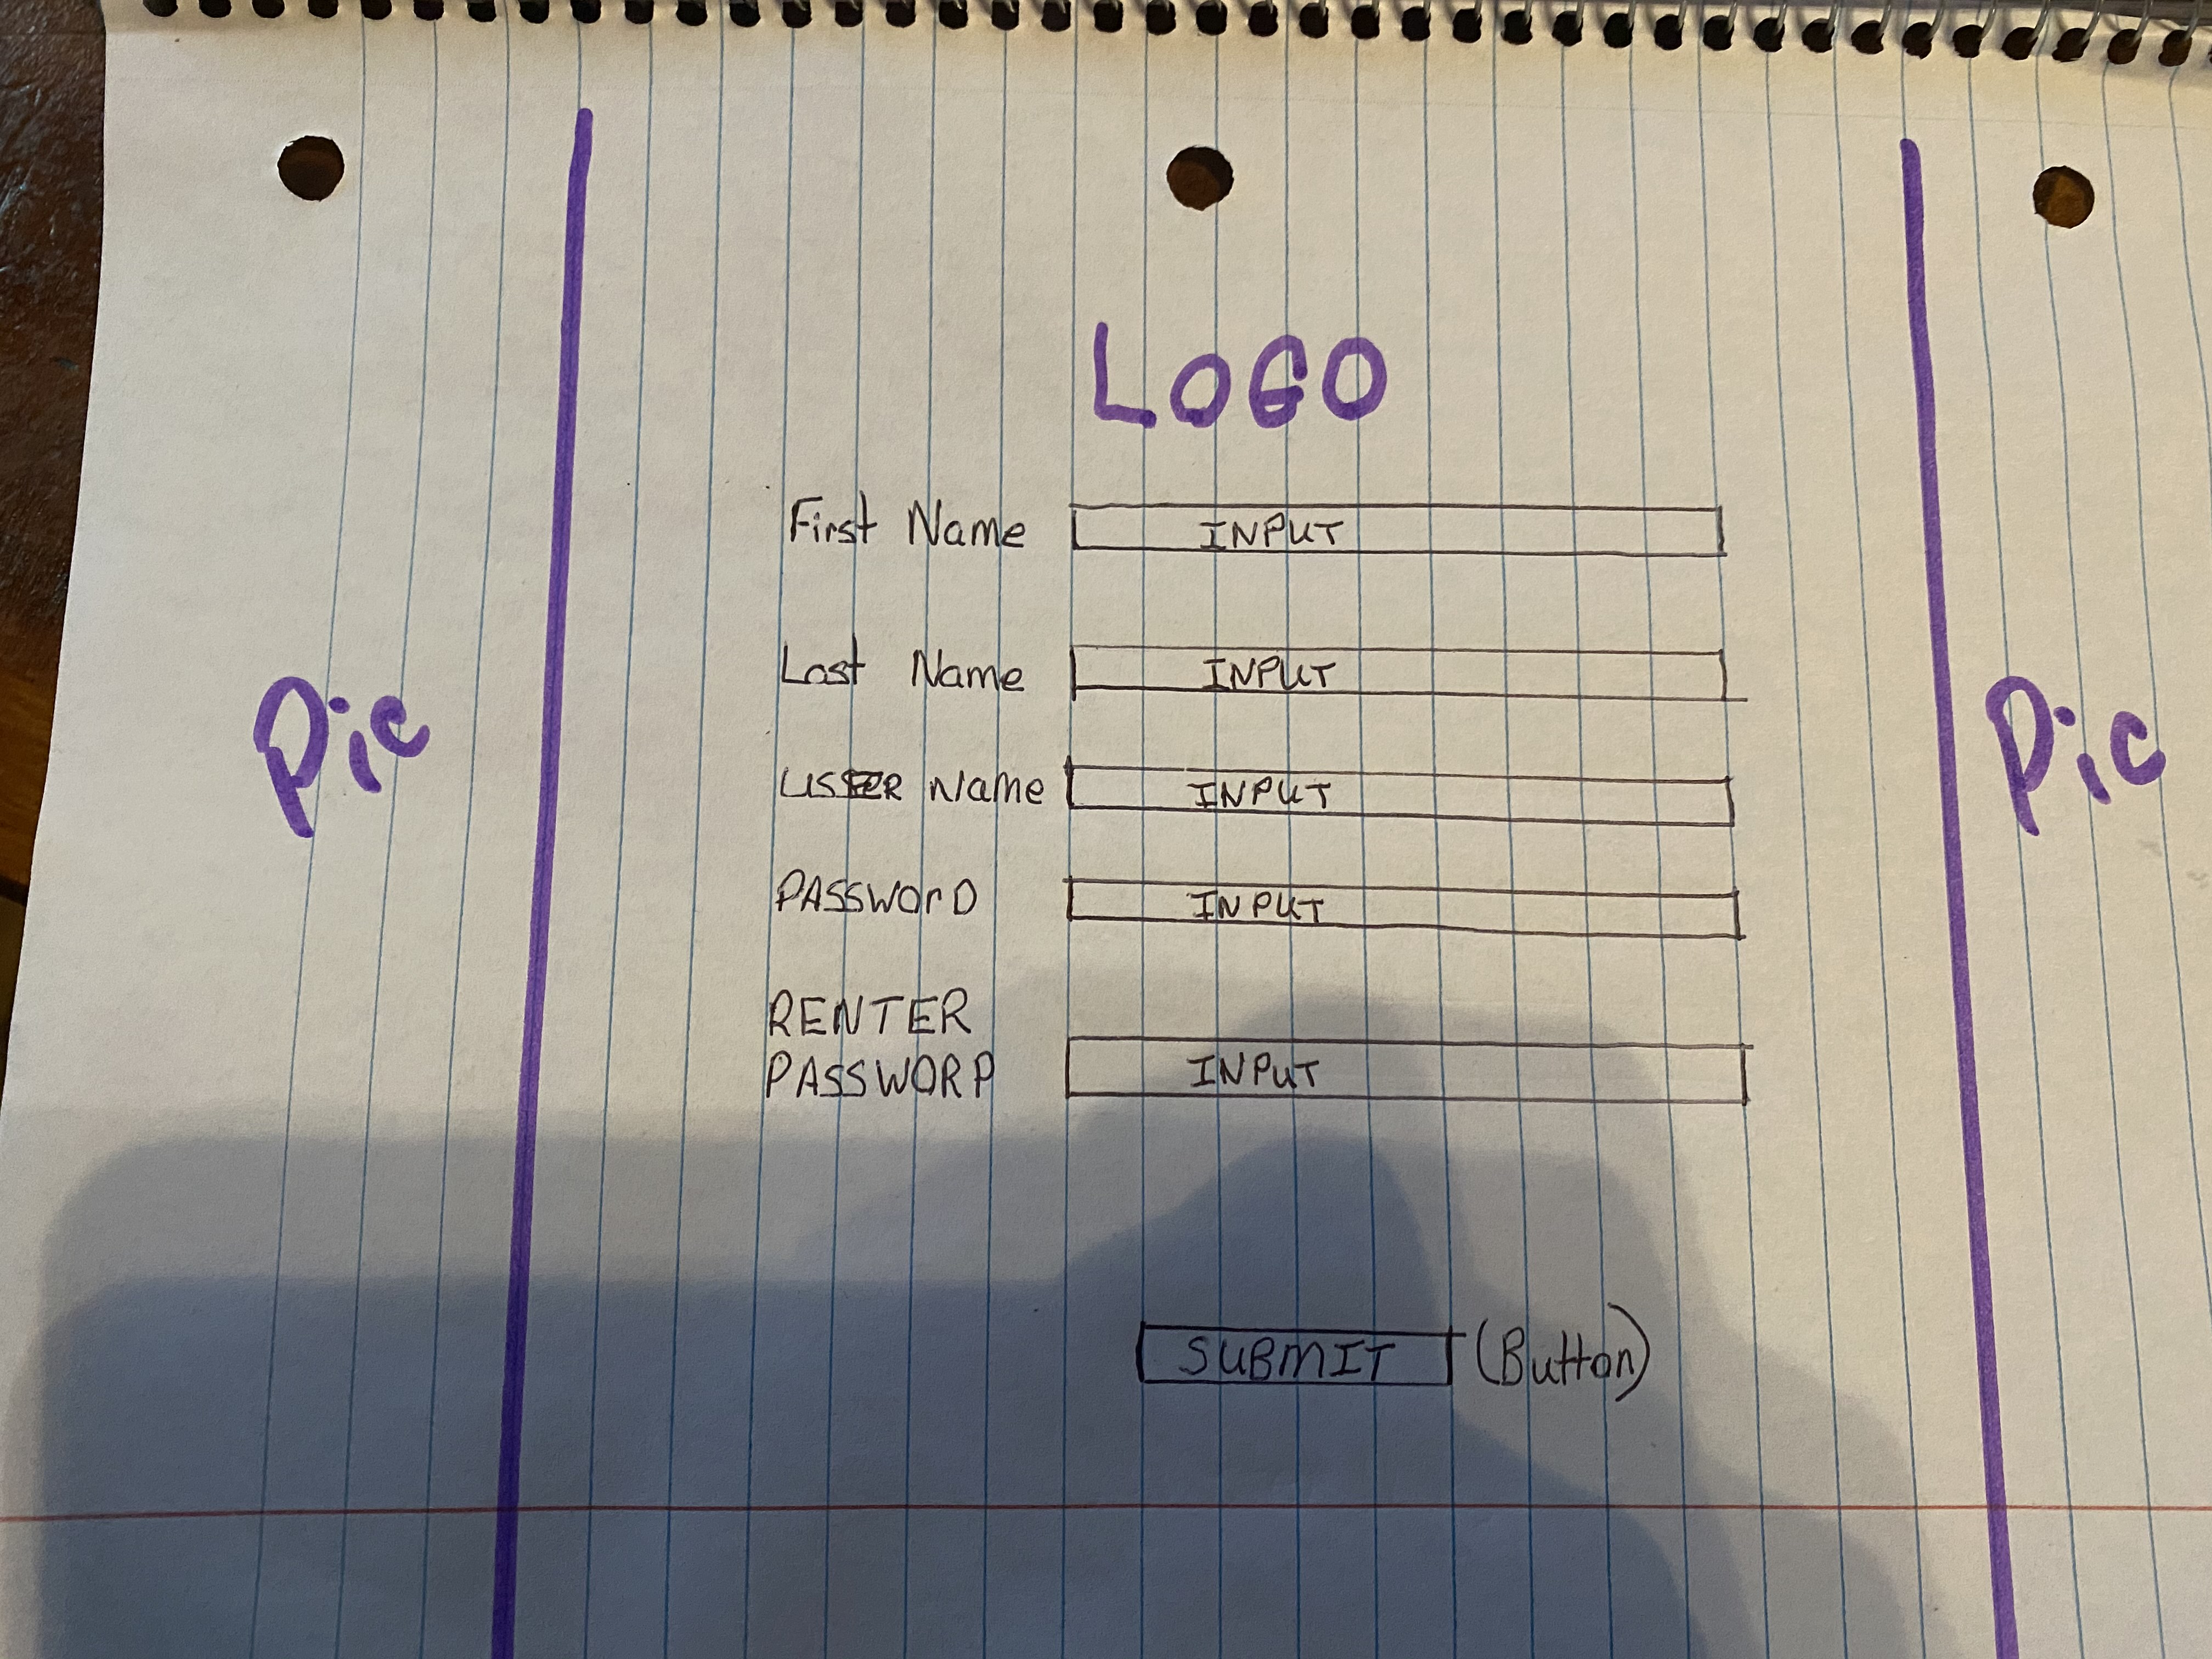 LOGO
First Name INPUT
Last Name INPUT
USER Name INPUT
Pic
Pic
PASSWOrD INPUT
RENTER
PASSWORD INPUT
SUBMIT (Button)